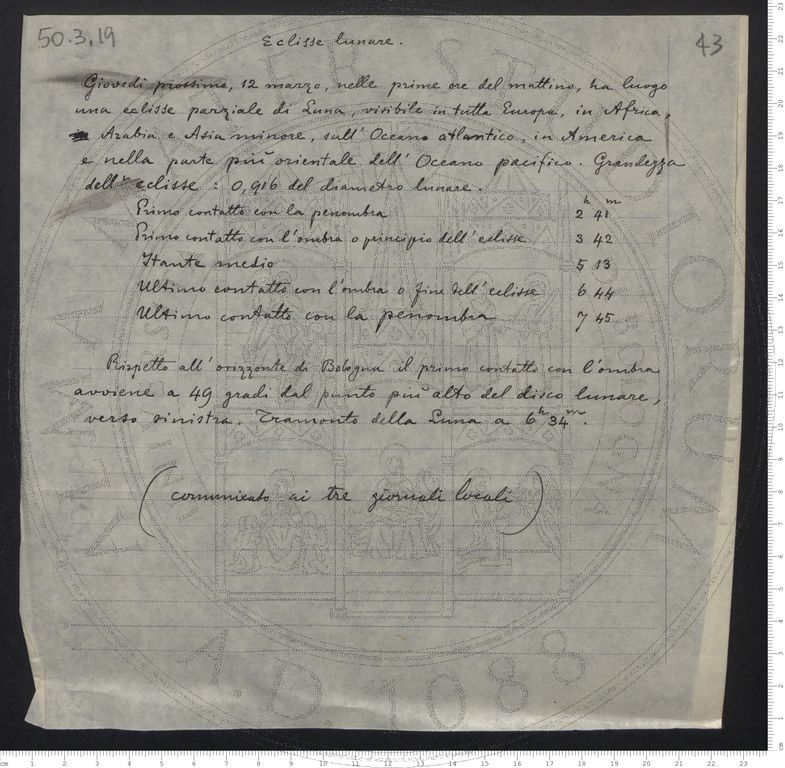 50.3.19
Eclisse lunare.
43
Giovedì prossimo, 12 marzo, nelle prime ore del mattino, ha luogo
una eclisse parziale di Luna, visibile in tutta Europa, in Africa,
Arabia e Asia minore, sull'Oceano atlantico, in America
e nella parte più orientale dell'Oceano pacifico. Grandezza
dell'eclisse: 0,916 del diametro lunare.
h m
Primo contatto con la penombra 2 41
Primo contatto con l'ombra o principio dell'eclisse 3 42
Istante medio 5 13
Ultimo contatto con l'ombra o fine dell'eclisse 6 44
Ultimo contatto con la penombra 7 45
Rispetto all'orizzonte di Bologna il primo contatto con l'ombra
avviene a 49 gradi dal punto più alto del disco lunare,
verso sinistra. Tramonto della Luna a 6h 34m.
(comunicato ai tre giornali locali)
ALMA MATER STUDIORUM
A.D. 1088